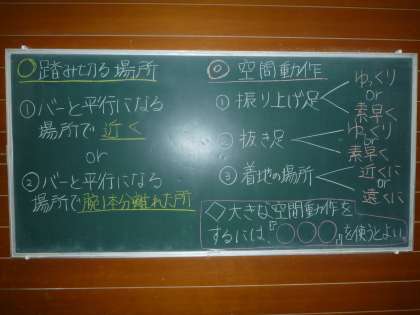 ○踏み切る場所
①バーと平行になる
場所で近く
or
②バーと平行になる
場所で腕1本分離れた所
◎空間動作
①振り上げ足
ゆっくり
or
素早く
②抜き足
ゆっくり
or
素早く
③着地の場所
近くに
or
遠くに
◇大きな空間動作を
するには、『○○○』を使うとよい。